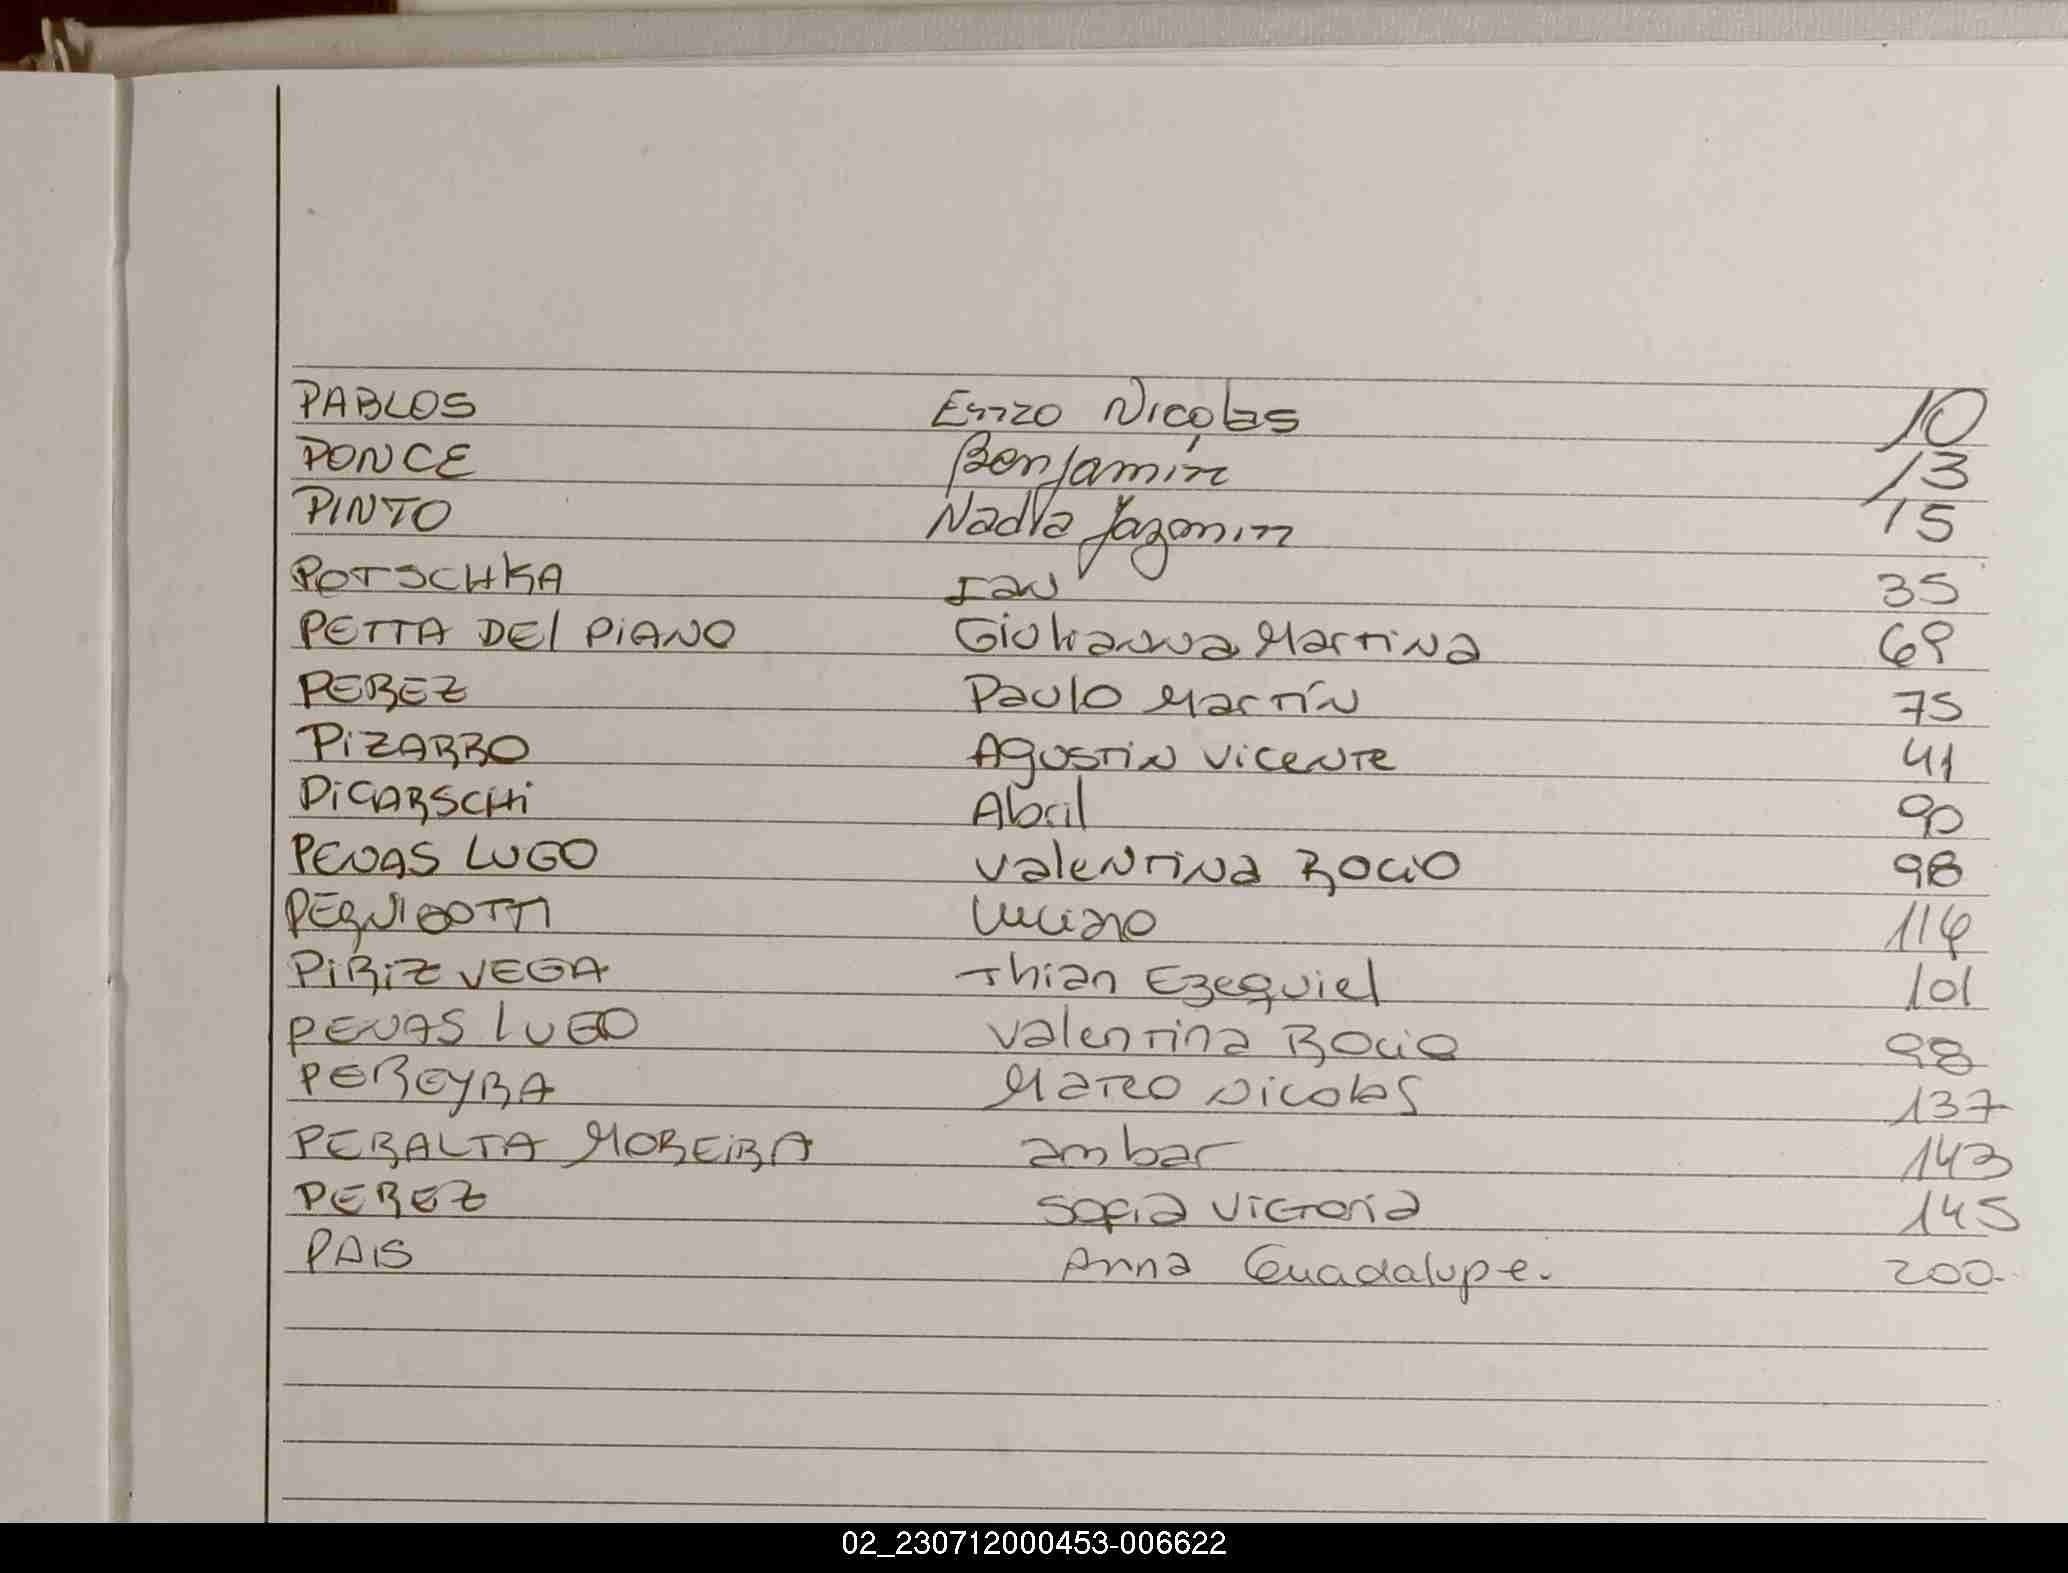 PABLOS Enzo Nicolas 10
PONCE Benjamin 13
PINTO Nadia Yazmin 15
POTSCHKA Ian 35
PETTA DEL PIANO Giovanna Martina 69
PEREZ Paulo Martín 75
PIZARRO Agustin Vicente 41
PICARSCHI Abril 90
PENAS LUGO Valentina Rocio 98
PEQUIGOTTI Luciano 114
PIRIZ VEGA Thian Ezequiel 101
PENAS LUGO Valentina Rocio 98
PEREYRA Mateo Nicolas 137
PERALTA MOREIRA ambar 143
PEREZ Sofia Victoria 145
PAIS Anna Guadalupe. 200.
02_230712000453-006622